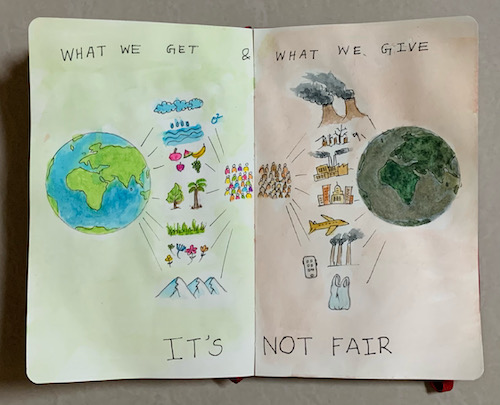 WHAT WE GET & WHAT WE GIVE
IT'S NOT FAIR